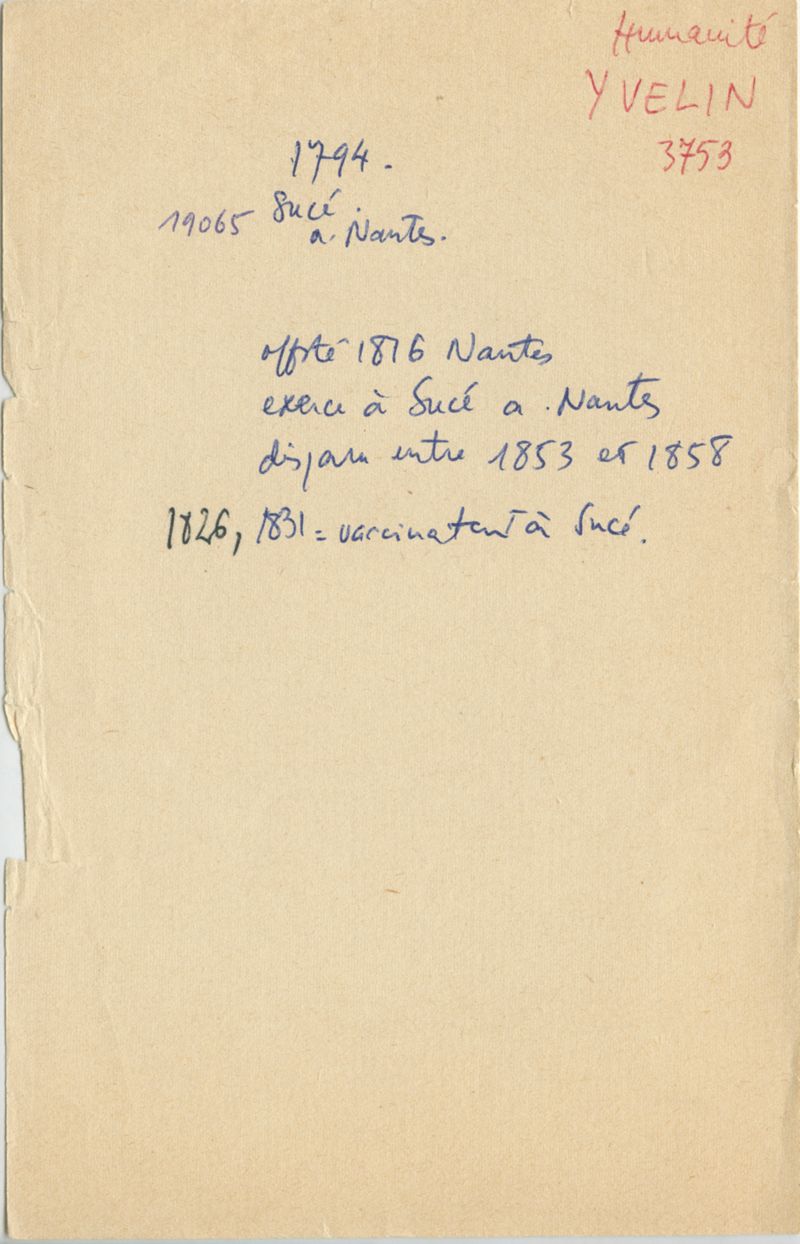 Humanité
YVELIN
3753
1794.
19065 Sucé.
a. Nantes.
offsté 1816 Nantes
exerce à Sucé a. Nantes
disparu entre 1853 et 1858
1826, 1831 = vaccinateur à Sucé.